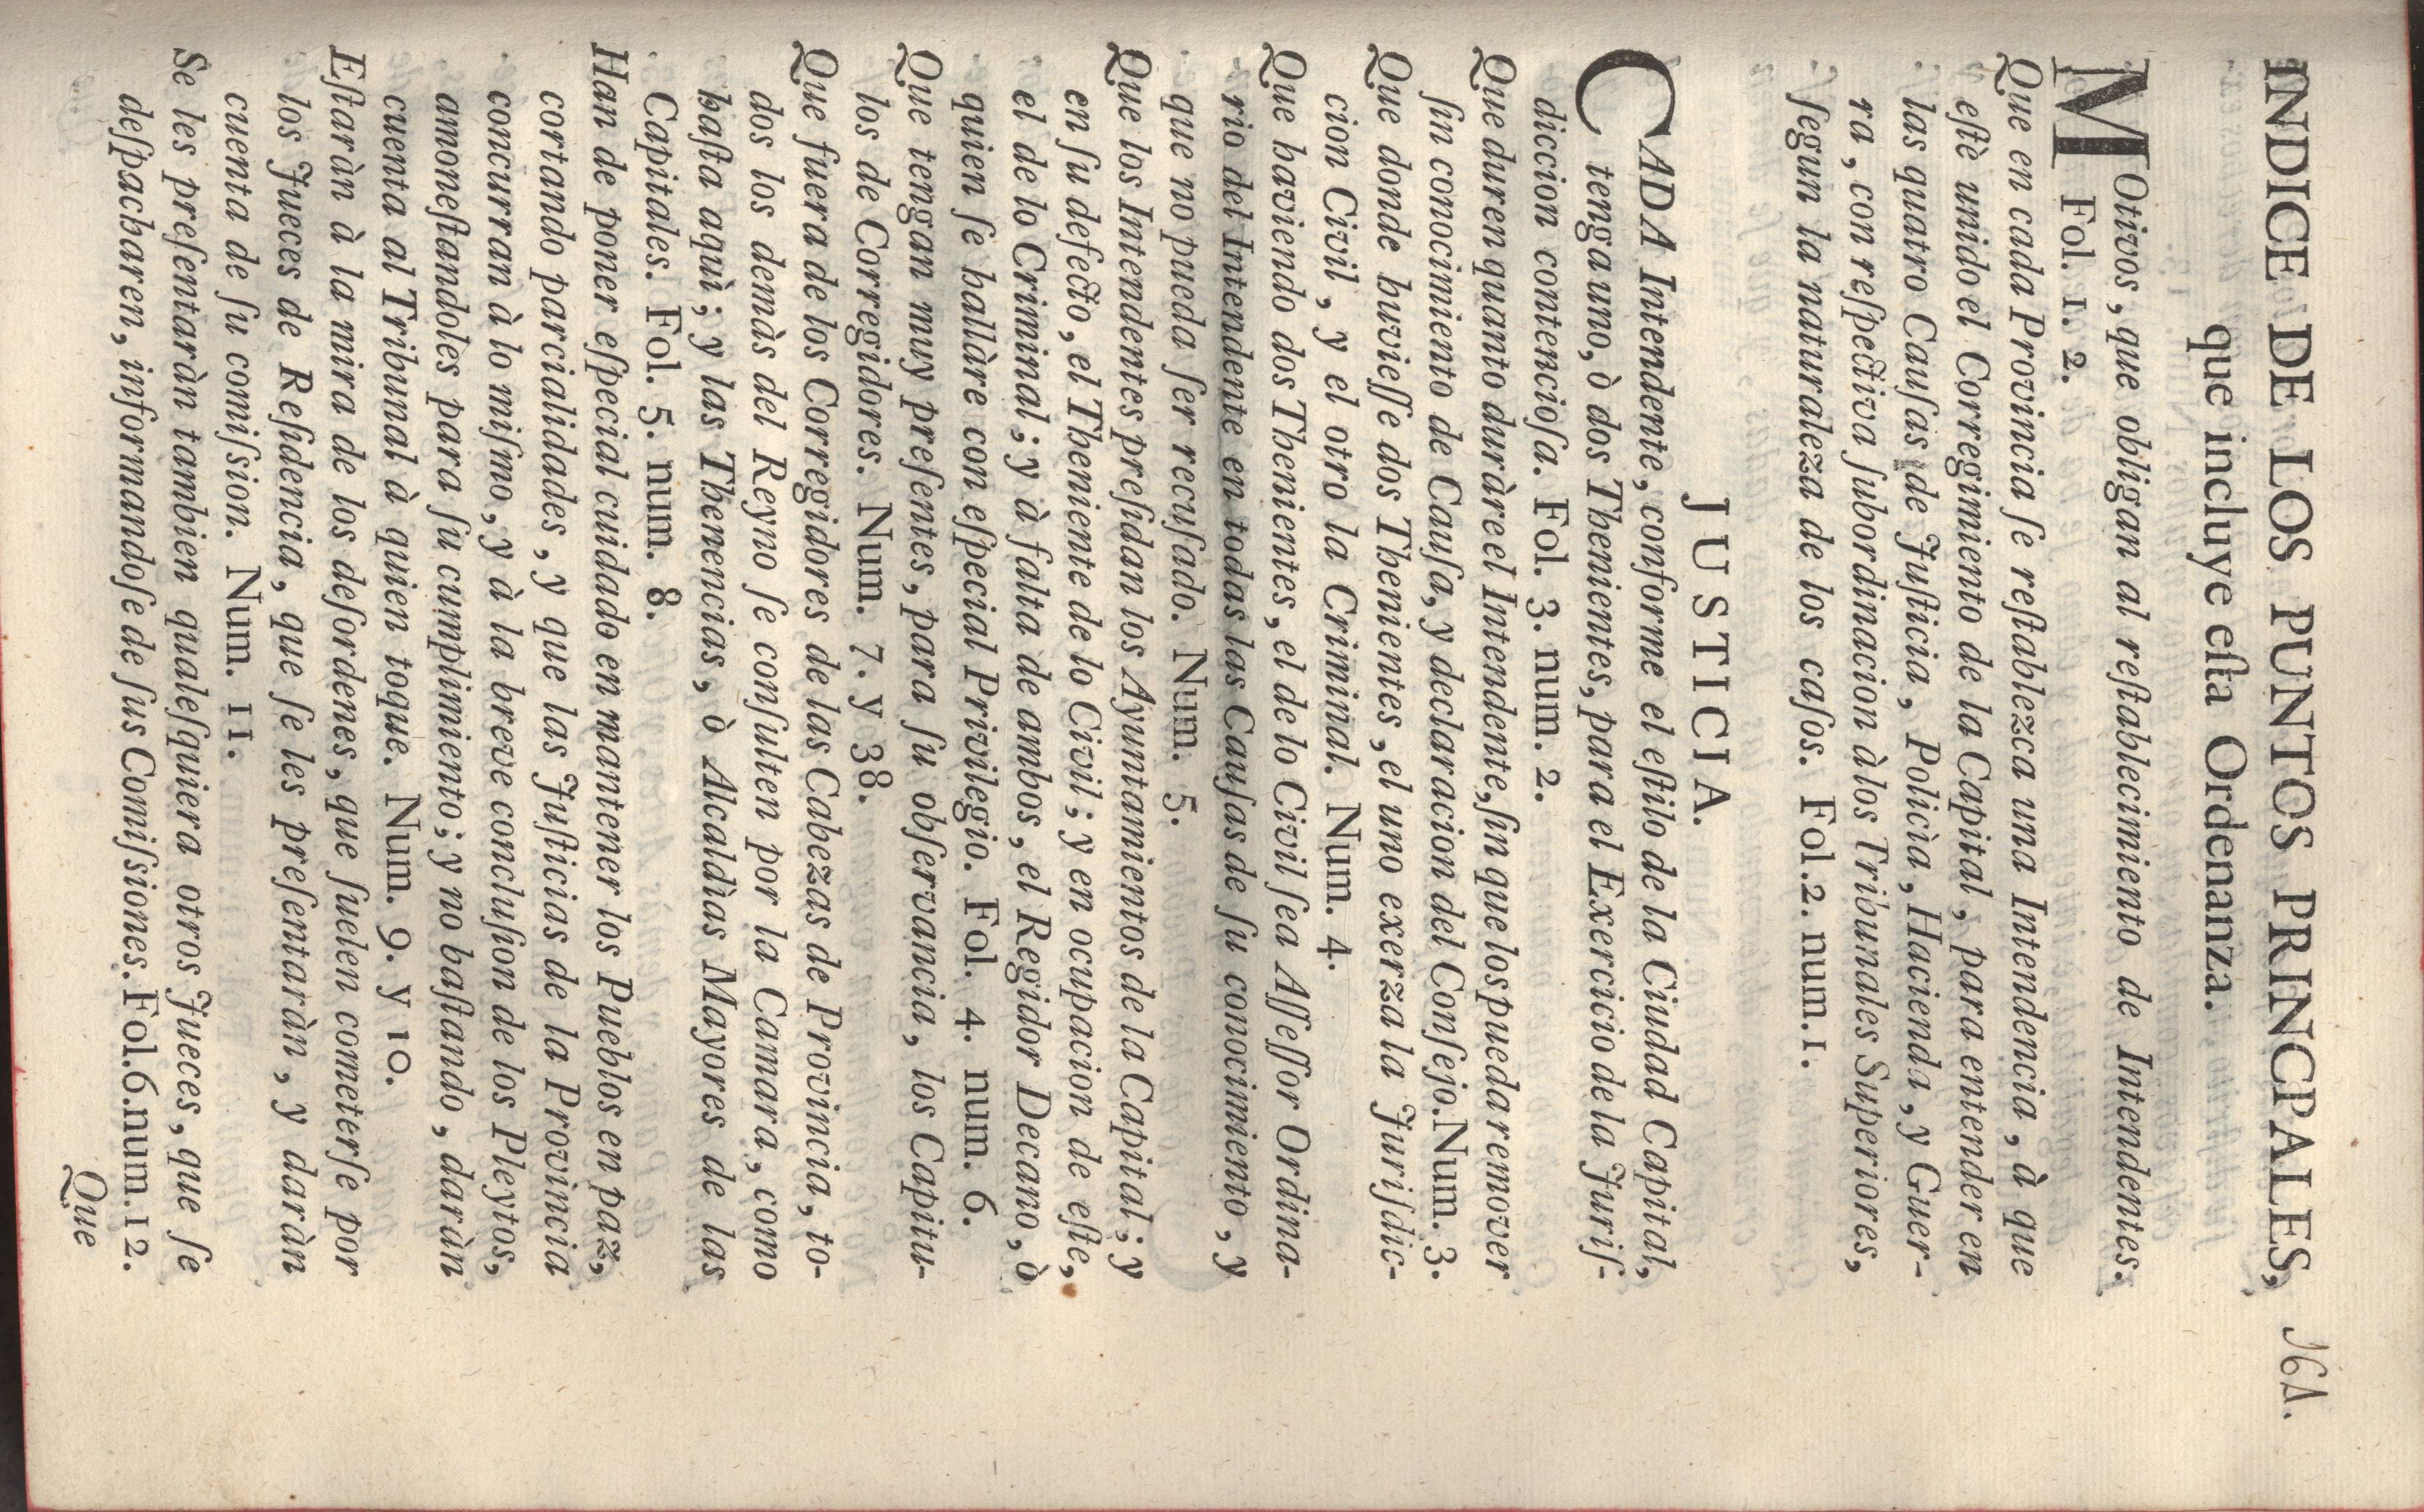 INDICE DE LOS PUNTOS PRINCPALES,
que incluye eſta Ordenanza.
MOtivos, que obligan al reſtablecimiento de Intendentes.
Fol. 1. 2.
Que en cada Provincia ſe reſtablezca una Intendencia, à que
eſtè unido el Corregimiento de la Capital, para entender en
las quatro Cauſas de Juſticia, Policìa, Hacienda, y Guer-
ra, con reſpectiva ſubordinacion à los Tribunales Superiores,
ſegun la naturaleza de los caſos. Fol. 2. num. 1.
JUSTICIA.
CADA Intendente, conforme el eſtilo de la Ciudad Capital,
tenga uno, ò dos Thenientes, para el Exercicio de la Juriſ-
diccion contencioſa. Fol. 3. num. 2.
Que duren quanto duràre el Intendente, ſin que los pueda remover
ſin conocimiento de Cauſa, y declaracion del Conſejo. Num. 3.
Que donde huvieſſe dos Thenientes, el uno exerza la Juriſdic-
cion Civil, y el otro la Criminal. Num. 4.
Que haviendo dos Thenientes, el de lo Civil ſea Aſſeſſor Ordina-
rio del Intendente en todas las Cauſas de ſu conocimiento, y
que no pueda ſer recuſado. Num. 5.
Que los Intendentes preſidan los Ayuntamientos de la Capital; y
en ſu defecto, el Theniente de lo Civil; y en ocupacion de eſte,
el de lo Criminal; y à falta de ambos, el Regidor Decano, ò
quien ſe hallàre con eſpecial Privilegio. Fol. 4. num. 6.
Que tengan muy preſentes, para ſu obſervancia, los Capitu-
los de Corregidores. Num. 7. y 38.
Que fuera de los Corregidores de las Cabezas de Provincia, to-
dos los demàs del Reyno ſe conſulten por la Camara, como
haſta aquì; y las Thenencias, ò Alcaldìas Mayores de las
Capitales. Fol. 5. num. 8.
Han de poner eſpecial cuidado en mantener los Pueblos en paz,
cortando parcialidades, y que las Juſticias de la Provincia
concurran à lo miſmo, y à la breve concluſion de los Pleytos,
amoneſtandoles para ſu cumplimiento; y no baſtando, daràn
cuenta al Tribunal à quien toque. Num. 9. y 10.
Eſtaràn à la mira de los deſordenes, que ſuelen cometerſe por
los Jueces de Reſidencia, que ſe les preſentaràn, y daràn
cuenta de ſu comiſsion. Num. 11.
Se les preſentaràn tambien qualeſquiera otros Jueces, que ſe
deſpacharen, informandoſe de ſus Comiſsiones. Fol. 6. num. 12.
Que